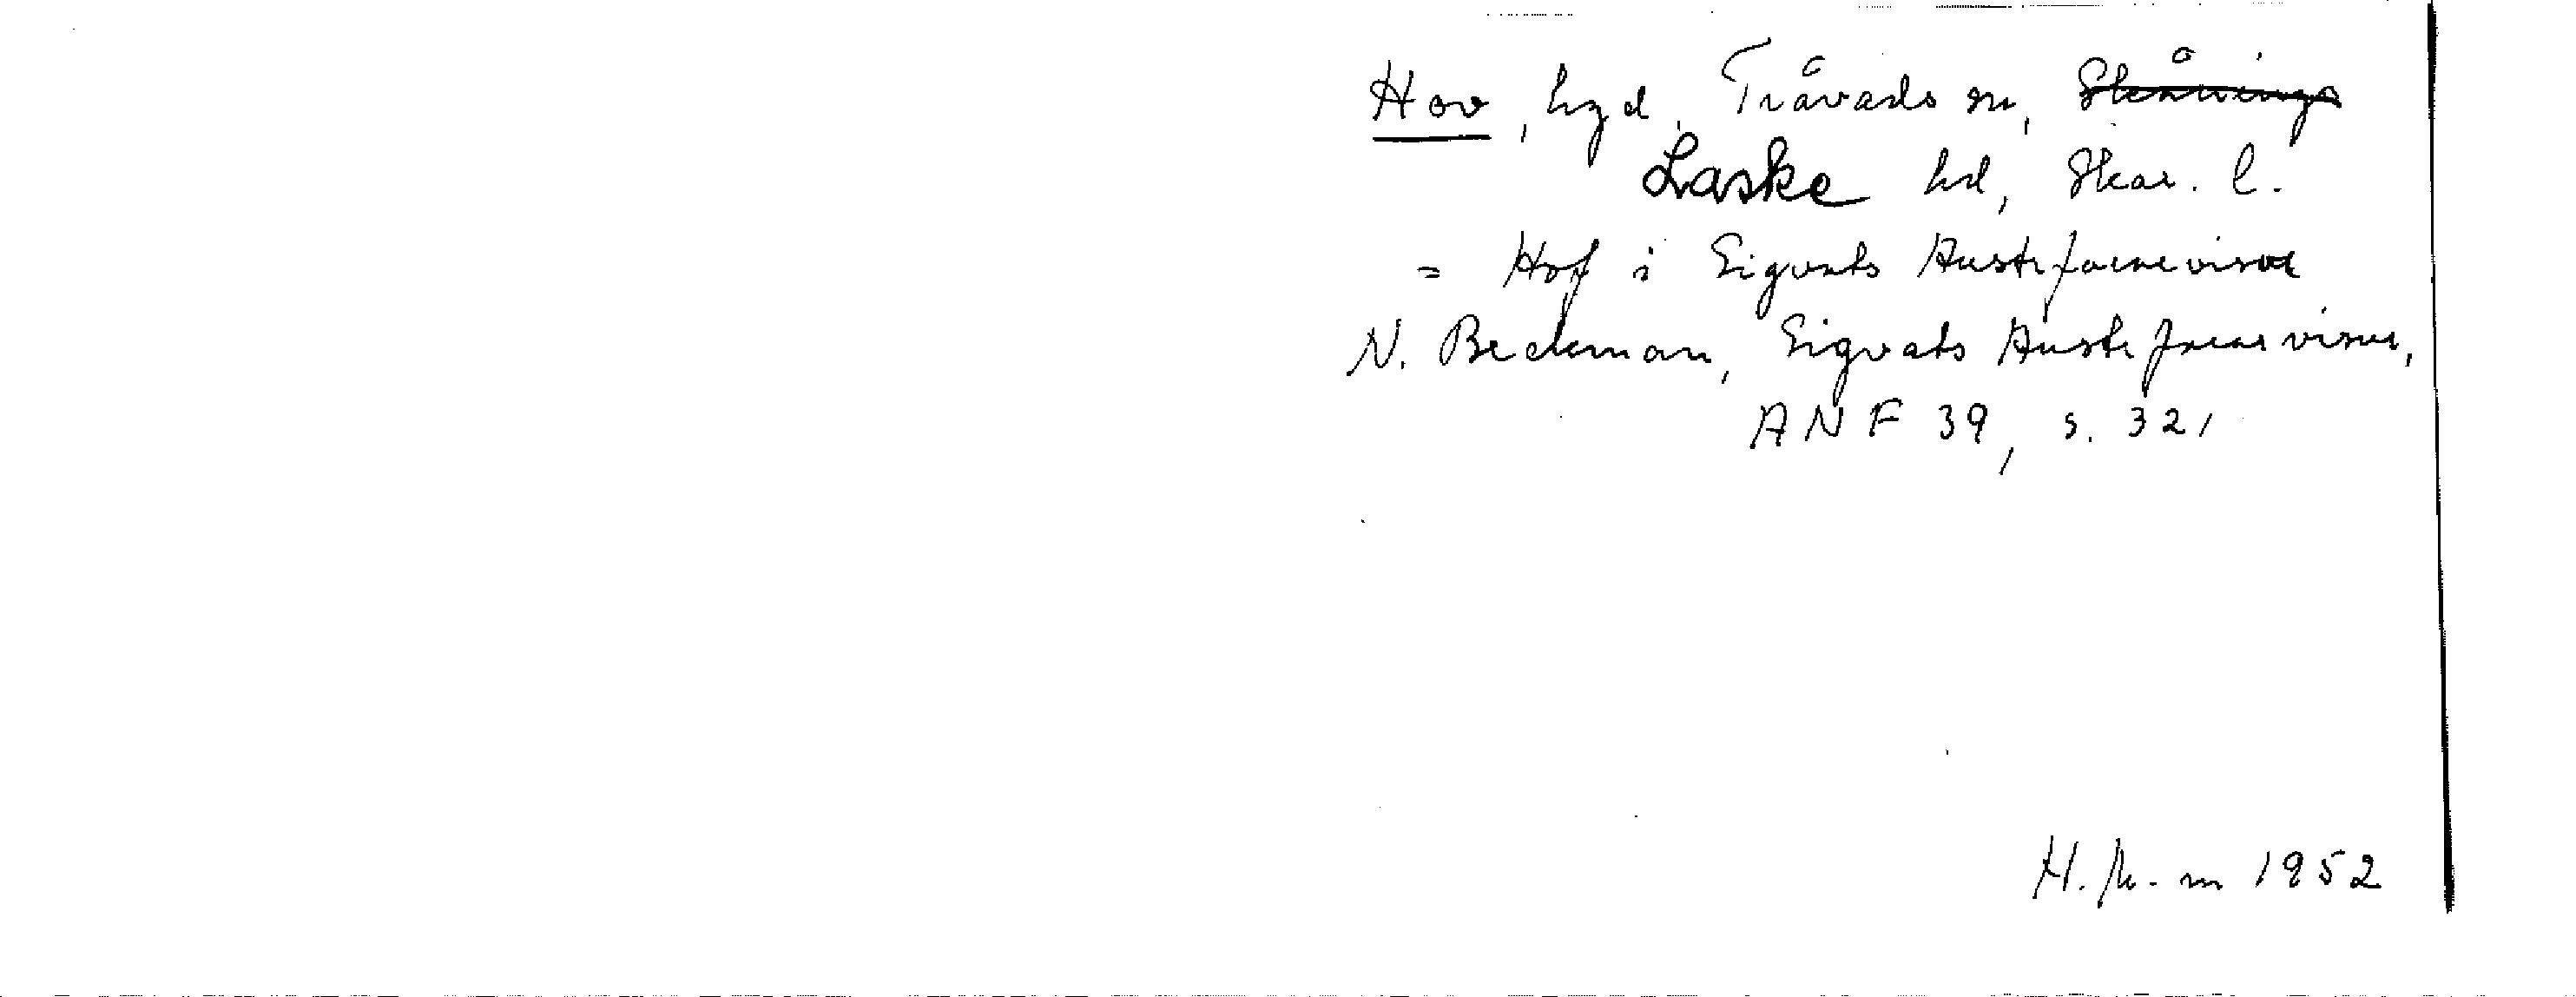 Hov, hgd, Tråvads sn, Skånings
Laske hd, Skar. l.
= Hof i Sigvats Austrfararvisur
N. Beckman, Sigvats Austrfararvisur,
ANF 39, s. 321
1952